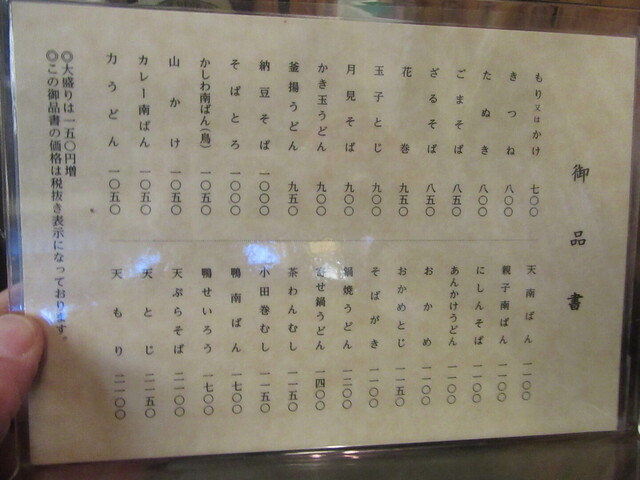 御品書
もり又はかけ 七〇〇
きつね 八〇〇
たぬき 八〇〇
ごまそば 八五〇
ざるそば 八五〇
花巻 九五〇
玉子とじ 九〇〇
月見そば 九〇〇
かき玉うどん 九〇〇
釜揚うどん 九五〇
納豆そば 一〇〇〇
そばとろ 一〇〇〇
かしわ南ばん(鳥) 一〇五〇
山かけ 一〇五〇
カレー南ばん 一〇五〇
力うどん 一〇五〇
天南ばん 一一〇〇
親子南ばん 一一〇〇
にしんそば 一一〇〇
あんかけうどん 一一〇〇
おかめ 一一〇〇
おかめとじ 一一五〇
そばがき 一一〇〇
鍋焼うどん 一二〇〇
よせ鍋うどん 一四〇〇
茶わんむし 一一五〇
小田巻むし 一一五〇
鴨南ばん 一七〇〇
鴨せいろう 一七〇〇
天ぷらそば 二一〇〇
天とじ 二一五〇
天もり 二一〇〇
◎大盛りは一五〇円増
◎この御品書の価格は税抜き表示になっております。